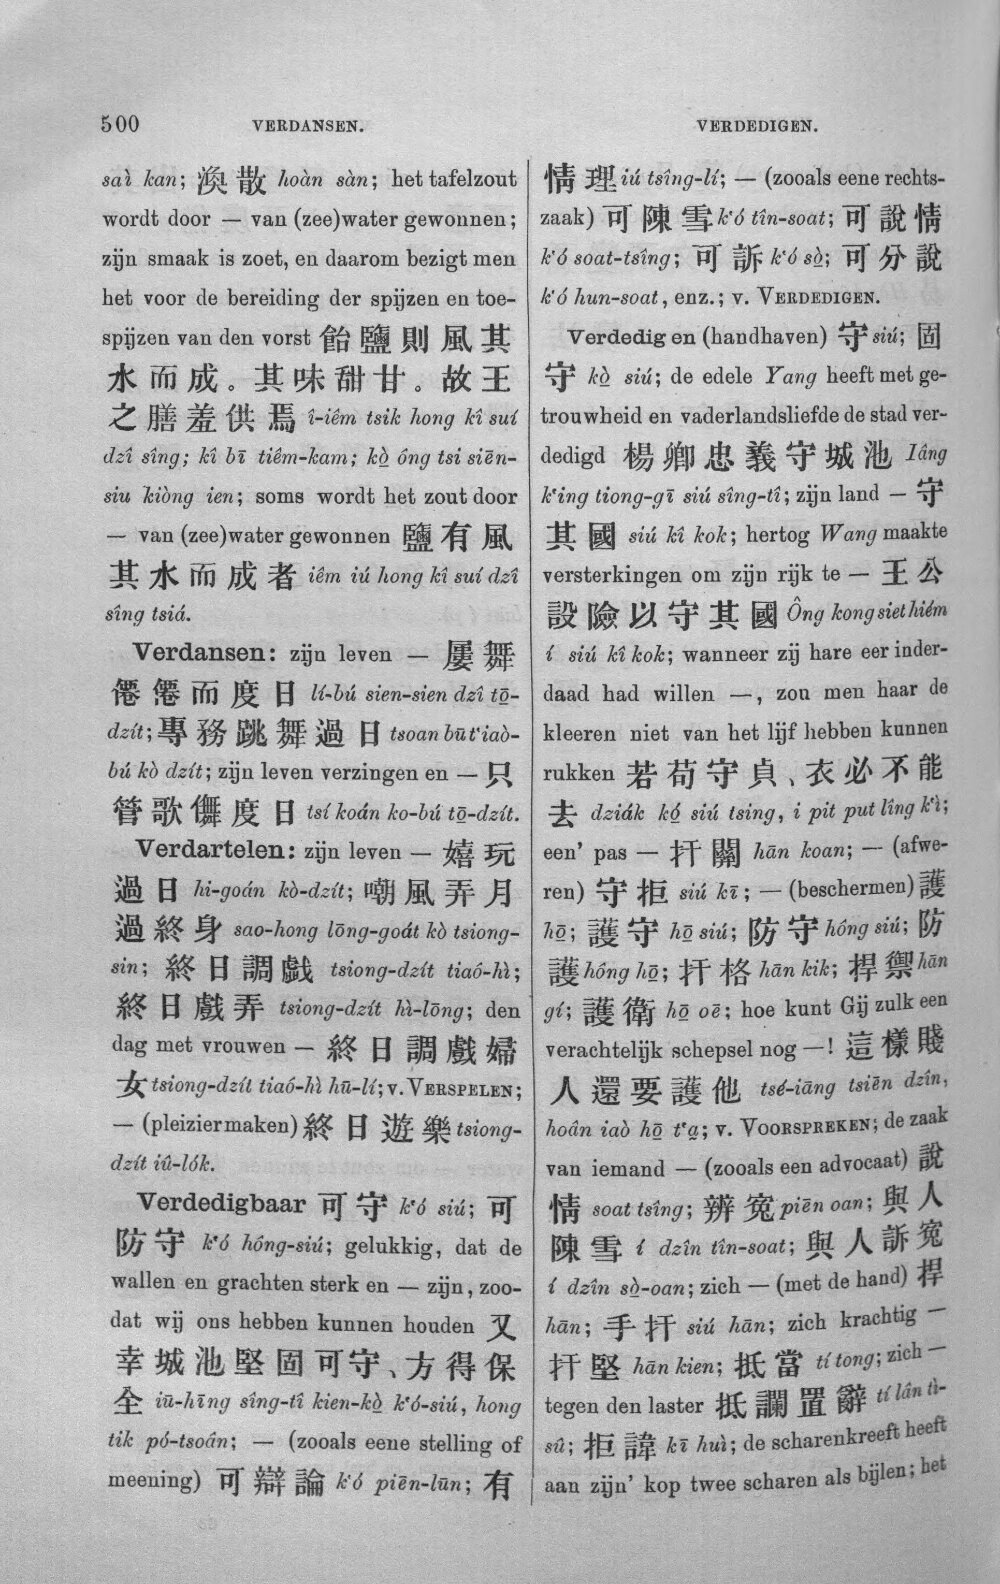 500 VERDANSEN. VERDEDIGEN.
saì kan; 渙散 hoàn sàn; het tafelzout
wordt door — van (zee)water gewonnen;
zijn smaak is zoet, en daarom bezigt men
het voor de bereiding der spijzen en toe-
spijzen van den vorst 飴鹽則風其
水而成。其味甜甘。故王
之膳羞供焉 î-iêm tsik hong kî suí
dzî sîng; kî bī tiêm-kam; kò ông tsi siēn-
siu kiòng ien; soms wordt het zout door
— van (zee)water gewonnen 鹽有風
其水而成者 iêm iú hong kî suí dzî
sîng tsiá.
Verdansen: zijn leven — 屢舞
僊僊而度日 lí-bú sien-sien dzî tō-
dzít; 專務跳舞過日 tsoan būt‘iaò-
bú kò dzít; zijn leven verzingen en — 只
管歌儛度日 tsí koán ko-bú tō-dzít.
Verdartelen: zijn leven — 嬉玩
過日 hi-goán kò-dzít; 嘲風弄月
過終身 sao-hong lōng-goát kò tsiong-
sin; 終日調戲 tsiong-dzít tiaó-hì;
終日戲弄 tsiong-dzít hì-lōng; den
dag met vrouwen — 終日調戲婦
女 tsiong-dzít tiaó-hì hū-lí; v. VERSPELEN;
— (pleizier maken) 終日遊樂 tsiong-
dzít iû-lók.
Verdedigbaar 可守 k‘ó siú; 可
防守 k‘ó hóng-siú; gelukkig, dat de
wallen en grachten sterk en — zijn, zoo-
dat wij ons hebben kunnen houden 又
幸城池堅固可守、方得保
全 iū-hīng sîng-tî kien-kò k‘ó-siú, hong
tik pó-tsoân; — (zooals eene stelling of
meening) 可辯論 k‘ó piēn-lūn; 有
情理 iú tsîng-lí; — (zooals eene rechts-
zaak) 可陳雪 k‘ó tîn-soat; 可說情
k‘ó soat-tsîng; 可訴 k‘ó sò; 可分說
k‘ó hun-soat, enz.; v. VERDEDIGEN.
Verdedigen (handhaven) 守 siú; 固
守 kò siú; de edele Yang heeft met ge-
trouwheid en vaderlandsliefde de stad ver-
dedigd 楊卿忠義守城池 Iâng
k‘ing tiong-gī siú sîng-tî; zijn land — 守
其國 siú kî kok; hertog Wang maakte
versterkingen om zijn rijk te — 王公
設險以守其國 Ông kong siet hiém
í siú kî kok; wanneer zij hare eer inder-
daad had willen —, zou men haar de
kleeren niet van het lijf hebben kunnen
rukken 若苟守貞、衣必不能
去 dziák kó siú tsing, i pit put líng k‘ì;
een’ pas — 扞關 hān koan; — (afwe-
ren) 守拒 siú kī; — (beschermen) 護
hō; 護守 hō siú; 防守 hóng siú; 防
護 hóng hō; 扞格 hān kik; 捍禦 hān
gí; 護衛 hō oē; hoe kunt Gij zulk een
verachtelijk schepsel nog —! 這樣賤
人還要護他 tsé-iāng tsiēn dzîn,
hoân iaò hō t‘a; v. VOORSPREKEN; de zaak
van iemand — (zooals een advocaat) 說
情 soat tsîng; 辨冤 piēn oan; 與人
陳雪 í dzîn tîn-soat; 與人訴冤
í dzîn sò-oan; zich — (met de hand) 捍
hān; 手扞 siú hān; zich krachtig —
扞堅 hān kien; 抵當 tí tong; zich —
tegen den laster 抵讕置辭 tí lân tì-
sû; 拒諱 kī huì; de scharenkreeft heeft
aan zijn’ kop twee scharen als bijlen; het